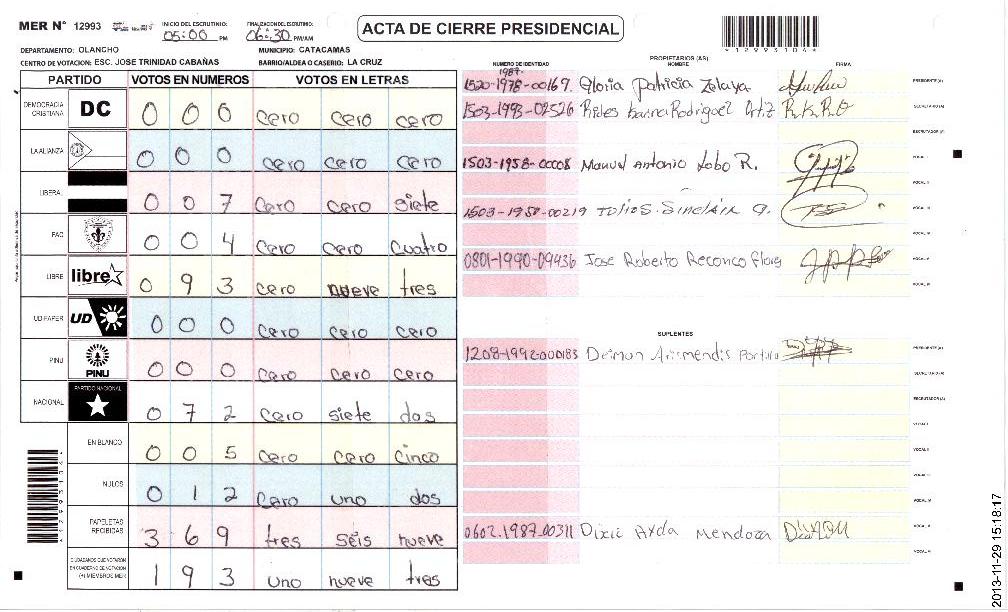 MER N° 12993 INICIO DEL ESCRUTINIO: 05:00 PM FINALIZACION DEL ESCRUTINIO: 06:30 PM/AM ACTA DE CIERRE PRESIDENCIAL
DEPARTAMENTO: OLANCHO MUNICIPIO: CATACAMAS
CENTRO DE VOTACION: ESC. JOSE TRINIDAD CABAÑAS BARRIO/ALDEA O CASERIO: LA CRUZ
PARTIDO VOTOS EN NUMEROS VOTOS EN LETRAS
DEMOCRACIA CRISTIANA DC 0 0 0 cero cero cero
LA ALIANZA 0 0 0 cero cero cero
LIBERAL 0 0 7 cero cero siete
0 0 4 cero cero cuatro
LIBRE libre 0 9 3 cero nueve tres
UD FAPER UD 0 0 0 cero cero cero
PINU PINU 0 0 0 cero cero cero
NACIONAL PARTIDO NACIONAL 0 7 2 cero siete dos
EN BLANCO 0 0 5 cero cero cinco
NULOS 0 1 2 cero uno dos
PAPELETAS RECIBIDAS 3 6 9 tres seis nueve
CIUDADANOS QUE VOTARON EN CUADERNO DE VOTACION (+) MIEMBROS MER 1 9 3 uno nueve tres
PROPIETARIOS (AS)
NUMERO DE IDENTIDAD NOMBRE FIRMA
1987-
1520-1978-00169. Gloria Patricia Zelaya PRESIDENTE (A)
1503-1993-02526 Rodriguez SECRETARIO (A)
ESCRUTADOR (A)
1503-1958-00008 Manuel Antonio Lobo R. VOCAL I
VOCAL II
1503-1950-00219 Julios. Sinclair G. VOCAL III
VOCAL IV
0801-1990-09436 Jose Roberto Reconco flores VOCAL V
VOCAL VI
SUPLENTES
1208-1992-000183 Deimun Arismendis PRESIDENTE (A)
SECRETARIO (A)
ESCRUTADOR (A)
VOCAL I
VOCAL II
VOCAL III
VOCAL IV
0602-1987-00311 Dixie Ayda Mendoza VOCAL V
VOCAL VI
2013-11-29 15:18:17